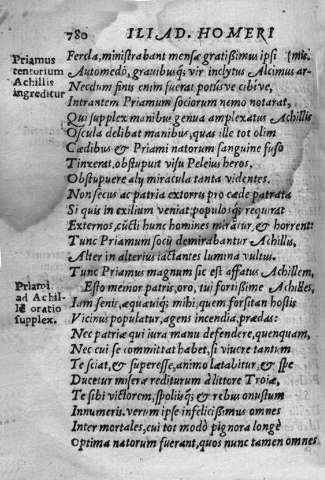 780 ILIAD. HOMERI
Priamus
tentorium
Achillis
ingreditur
Ferda, ministrabant mensæ gratißimus ipsi (mis.
Automedō, grauibusq́; vir inclytus Alcimus ar-
Necdum finis enim fuerat potúsve cibíve,
Intrantem Priamum sociorum nemo notarat,
Qui supplex manibus genua amplexatus Achillis
Oscula delibat manibus, quas ille tot olim
Cædibus & Priami natorum sanguine fuso
Tinxerat. obstupuit visu Peleius heros.
Obstupuere alij miracula tanta videntes.
Non secus ac patria extorris pro cæde patrata
Si quis in exilium veniat, populosq́; requirat
Externos, cūcti hunc homines mirātur, & horrent:
Tunc Priamum socij demirabantur Achillis,
Alter in alterius iactantes lumina vultus.
Tunc Priamus magnum sic est affatus Achillem,
Priami
ad Achil-
lē oratio
supplex.
Esto memor patris, oro, tui fortißime Achilles,
Iam senis, æquæuiq́; mihi, quem forsitan hostis
Vicinus populatur, agens incendia, prædas:
Nec patriæ qui iura manu defendere, quenquam,
Nec cui se committat habet, si viuere tantum
Te sciat, & superesse, animo lætabitur, & spe
Ducetur misera rediturum à littore Troiæ,
Te sibi victorem, spolijsq́; & rebus onustum
Innumeris. verum ipse infelicißimus omnes
Inter mortales, cui tot modò pignora longè
Optima natorum fuerant, quos nunc tamen omnes